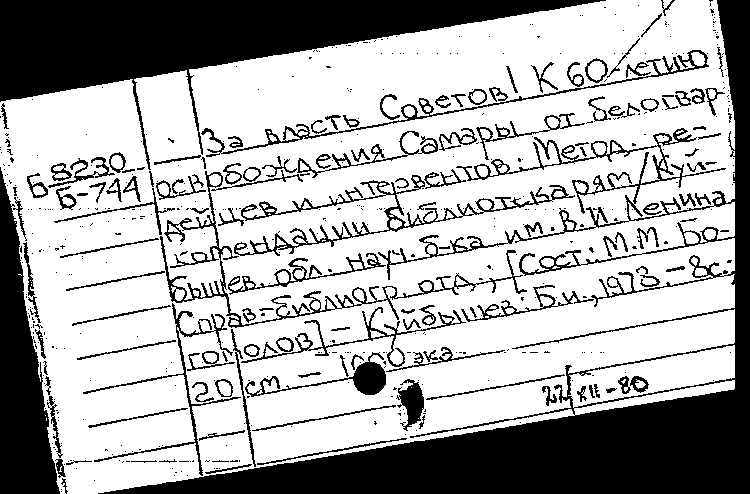 За власть Советов! К 60-летию
Б 8230
Б-744
освобождения Самары от белогвар-
дейцев и интервентов: Метод. ре-
комендации библиотекарям / Куй-
бышев. обл. науч. б-ка им. В. И. Ленина
Справ.-библиогр. отд.; [Сост.: М.М. Бо-
гомолов]. - Куйбышев: Б.и., 1978. - 8с.;
20 см. — 1000 экз
22/XII-80